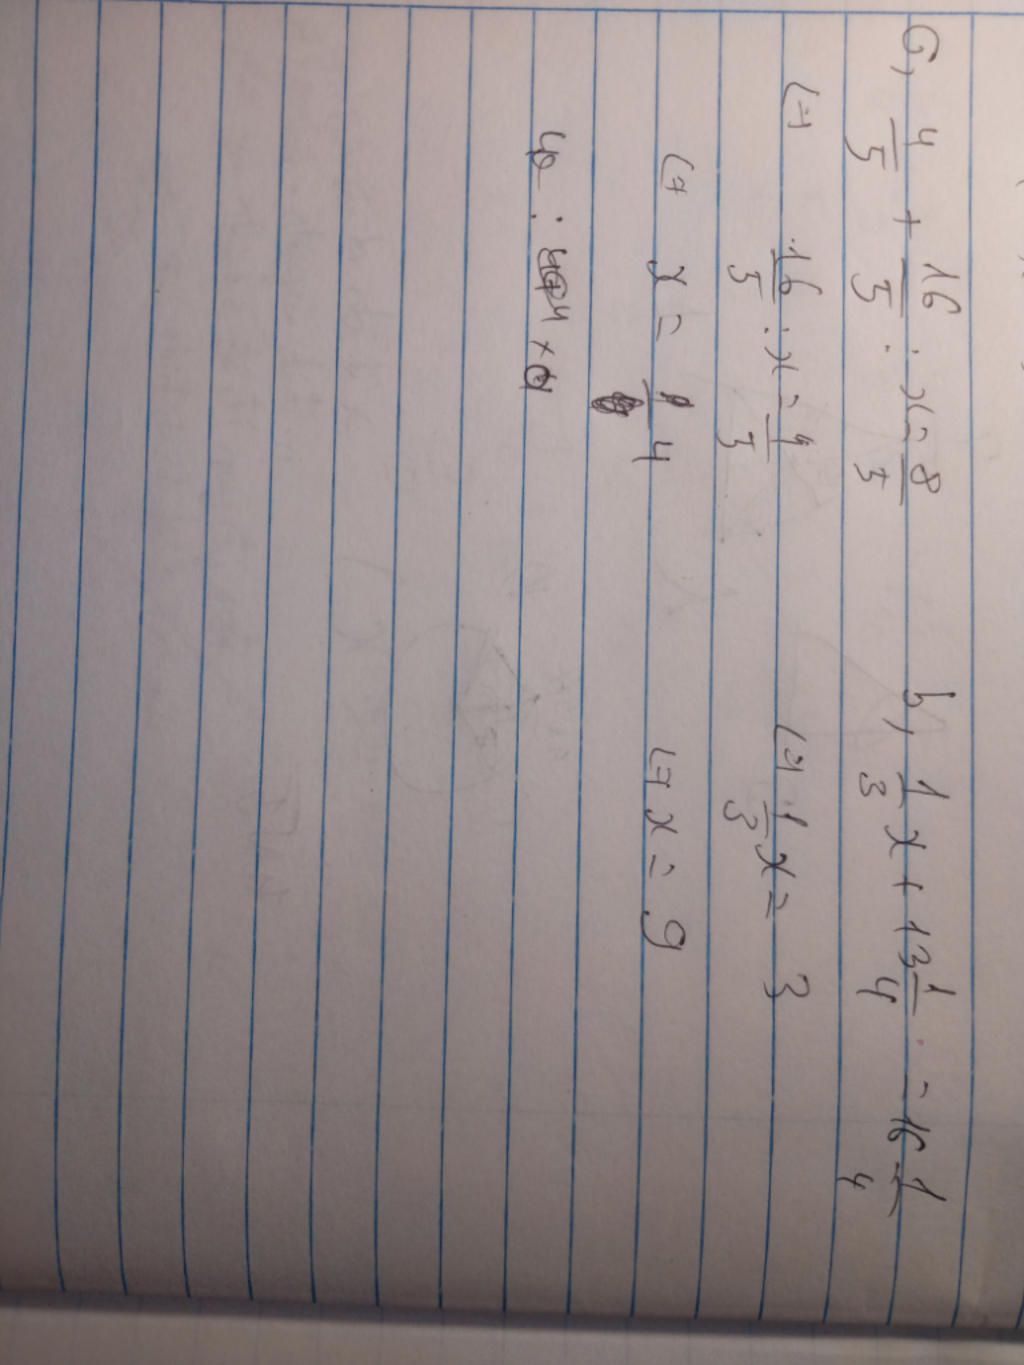 a, 4/5 + 16/5 : x = 8/5
(=) 16/5 : x = 4/5
(= x = 4
b, 1/3 x + 13 1/4 = 16 1/4
(=) 1/3 x = 3
(= x = 9